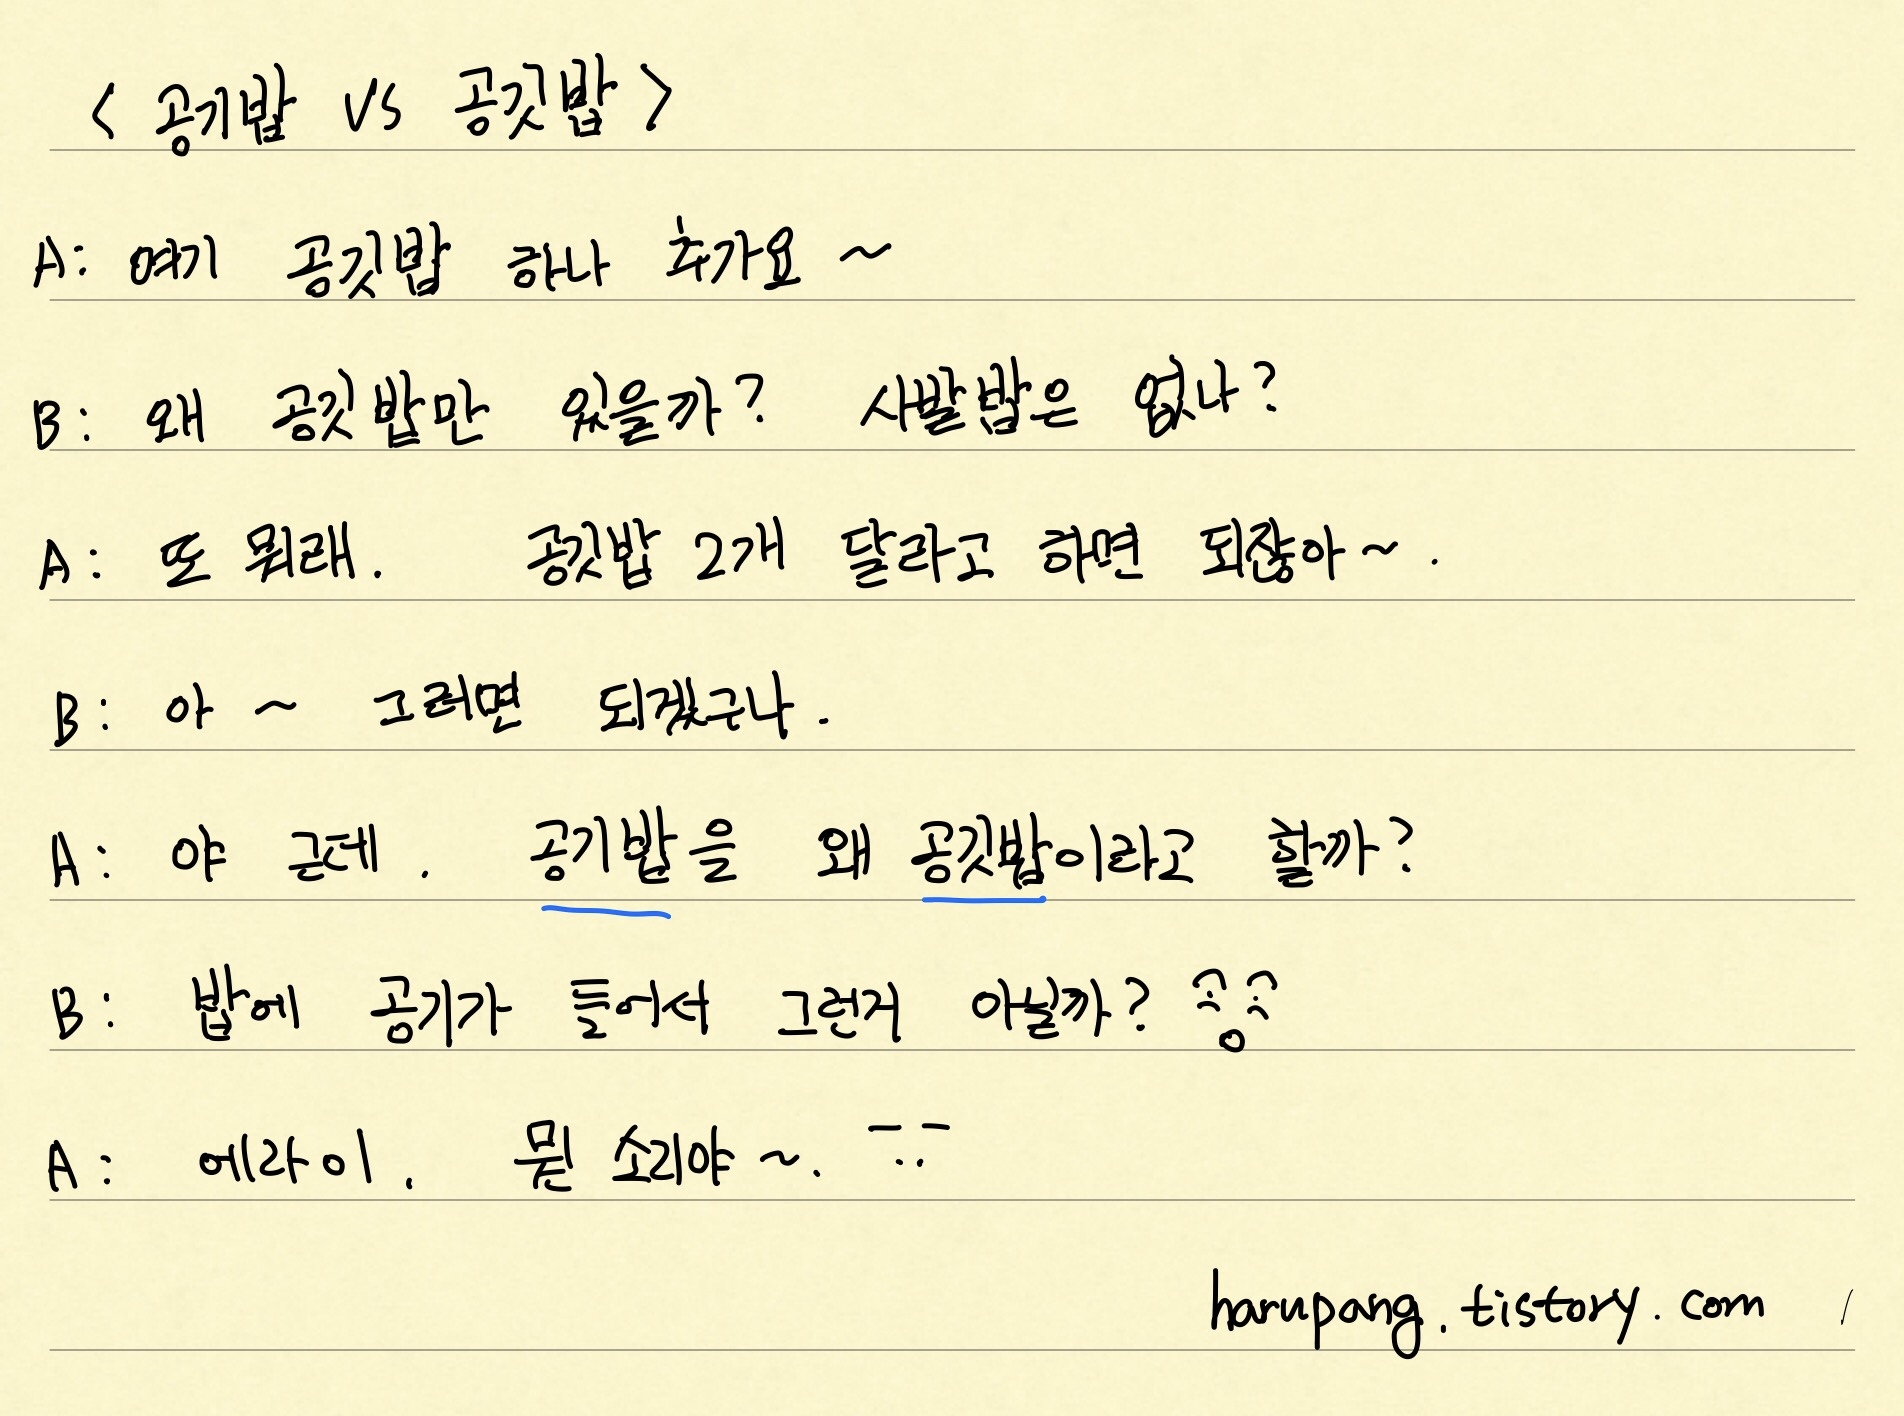 < 공기밥 vs 공깃밥 >
A: 여기 공깃밥 하나 추가요 ~
B: 왜 공깃밥만 있을까? 사발밥은 없나?
A: 또 뭐래. 공깃밥 2개 달라고 하면 되잖아~.
B: 아 ~ 그러면 되겠구나.
A: 야 근데. 공기밥을 왜 공깃밥이라고 할까?
B: 밥에 공기가 들어서 그런거 아닐까?
A: 에라이. 뭔 소리야 ~.
harupang.tistory.com